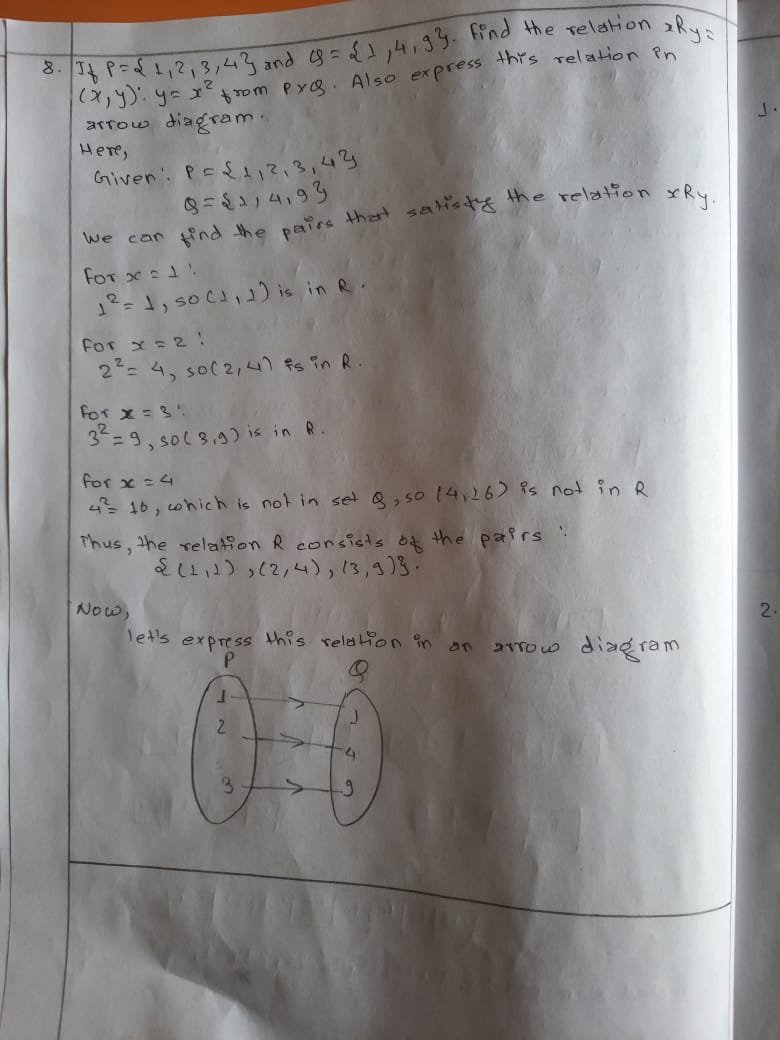 8. If P={1,2,3,4} and Q={1,4,9}. Find the relation xRy=
(x,y): y=x² from PXQ. Also express this relation in
arrow diagram.
Here,
Given: P={1,2,3,4}
Q={1,4,9}
We can find the pairs that satisfy the relation xRy.
For x=1:
1²=1, so (1,1) is in R.
For x=2:
2²=4, so (2,4) is in R.
For x=3:
3²=9, so (3,9) is in R.
For x=4
4²=16, which is not in set Q, so (4,16) is not in R
Thus, the relation R consists of the pairs:
{(1,1),(2,4),(3,9)}.
Now,
let's express this relation in an arrow diagram
P Q
1 1
2 4
3 9
1.
2.